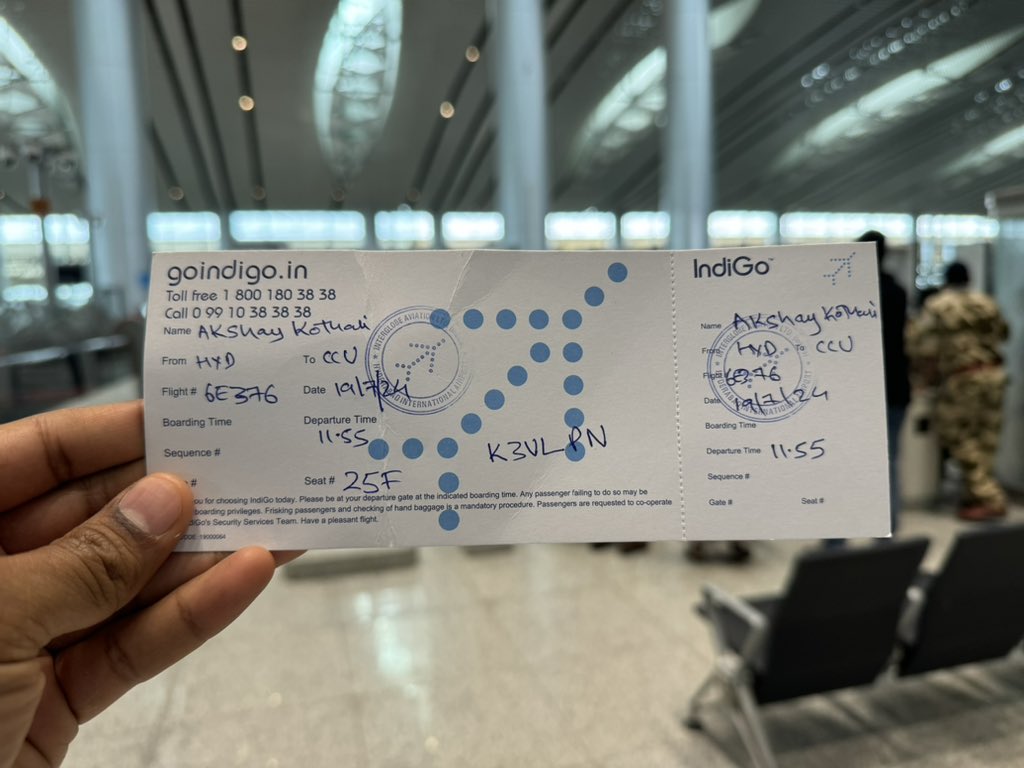 goindigo.in
Toll free 1 800 180 38 38
Call 0 99 10 38 38 38
Name Akshay Kothari
From HYD To CCU
Flight # 6E376 Date 19/7/24
Boarding Time Departure Time
11.55
Sequence #
K3VLPN
Seat # 25F
you for choosing IndiGo today. Please be at your departure gate at the indicated boarding time. Any passenger failing to do so may
boarding privileges. Frisking passengers and checking of hand baggage is a mandatory procedure. Passengers are requested to co-operate
IndiGo's Security Services Team. Have a pleasant flight.
INTERGLOBE AVIATION LTD
INTERNATIONAL AIRPORT
IndiGo
Name Akshay Kothari
From HYD to CCU
Flight 6E376
Date 19/7/24
Boarding Time
Departure Time 11.55
Sequence #
Gate # Seat #
INTERNATIONAL AIRPORT